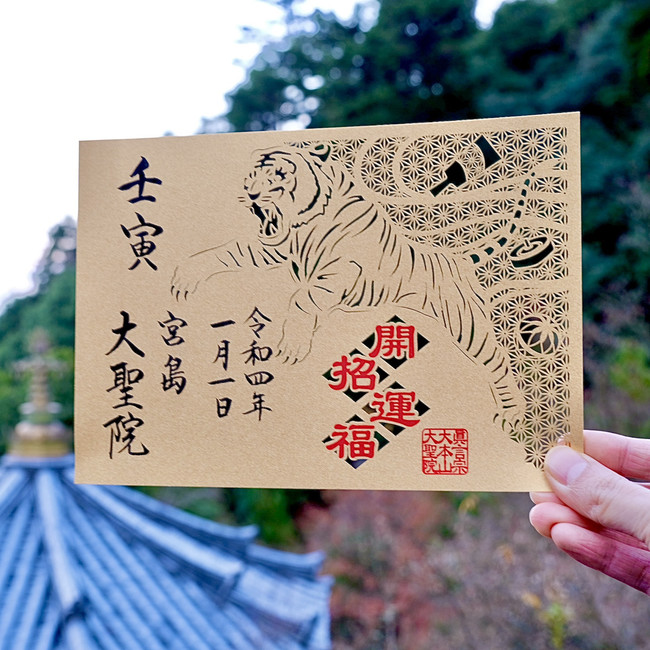 開運
招福
眞言宗
大本山
大聖院
令和四年
一月一日
宮島
壬寅
大聖院